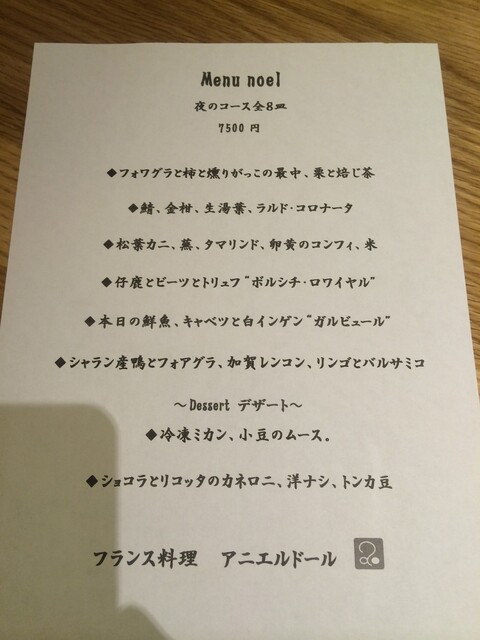 Menu noel
夜のコース全8皿
7500 円
◆フォワグラと柿と燻りがっこの最中、栗と焙じ茶
◆鯖、金柑、生湯葉、ラルド・コロナータ
◆松葉カニ、蕪、タマリンド、卵黄のコンフィ、米
◆仔鹿とビーツとトリュフ“ボルシチ・ロワイヤル”
◆本日の鮮魚、キャベツと白インゲン“ガルビュール”
◆シャラン産鴨とフォアグラ、加賀レンコン、リンゴとバルサミコ
～Dessert デザート～
◆冷凍ミカン、小豆のムース。
◆ショコラとリコッタのカネロニ、洋ナシ、トンカ豆
フランス料理　アニエルドール